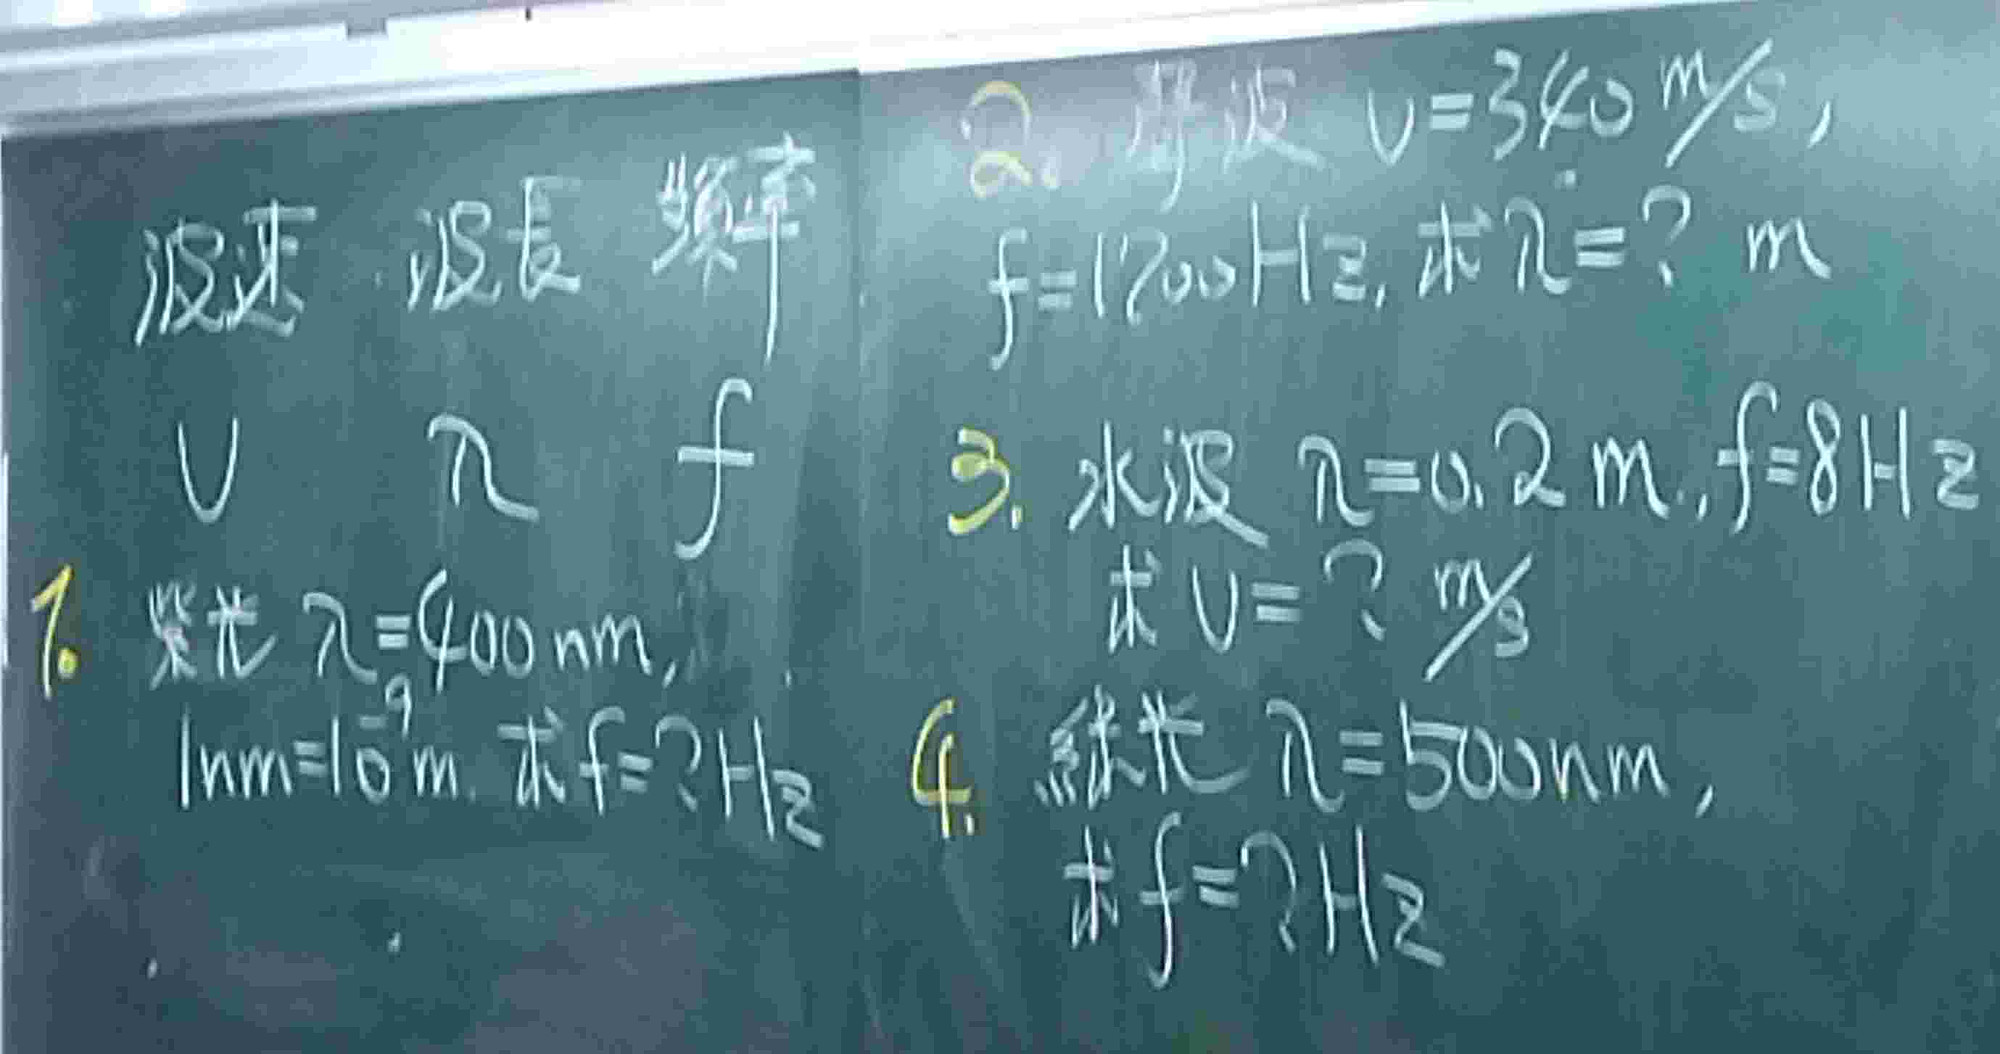 波速 波長 頻率
υ λ f
1. 紫光 λ=400nm,
1nm=10⁻⁹m. 求f=?Hz
2. 聲波 υ=340m/s,
f=1700Hz, 求λ=? m
3. 水波 λ=0.2m., f=8Hz
求υ=? m/s
4. 綠光 λ=500nm,
求f=?Hz